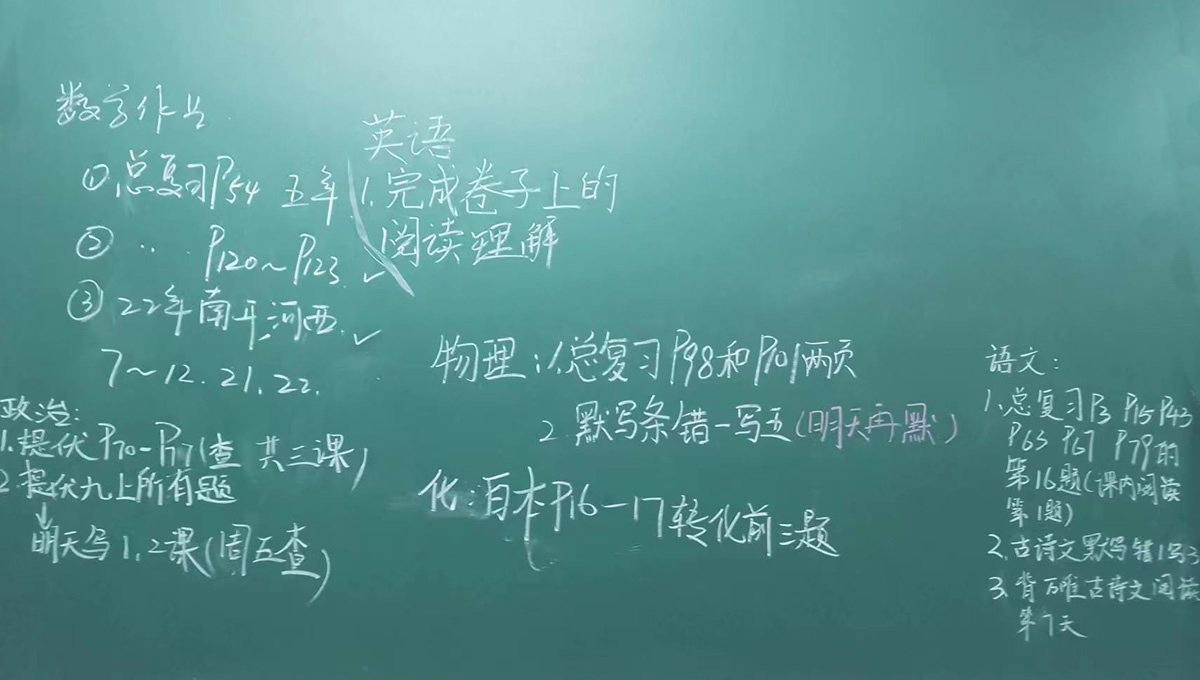 数学作业
①总复习P54 五年
② 〃 P120~P123 ✓
③ 22年南开,河西. ✓
7~12. 21. 22.
英语
1.完成卷子上的
阅读理解
政治:
1.提伏P70-P71(查 共三课)
2.提伏九上所有题
↓
明天写1.2课(周五查)
物理:1.总复习P98和P101两页
2.默写条错一写五(明天再默)
化:白本P16-17转化前三题
语文:
1.总复习P3 P15 P43
P63 P67 P79的
第16题(课内阅读
第1题)
2.古诗文默写错1写3
3.背万唯古诗文阅读
第7天